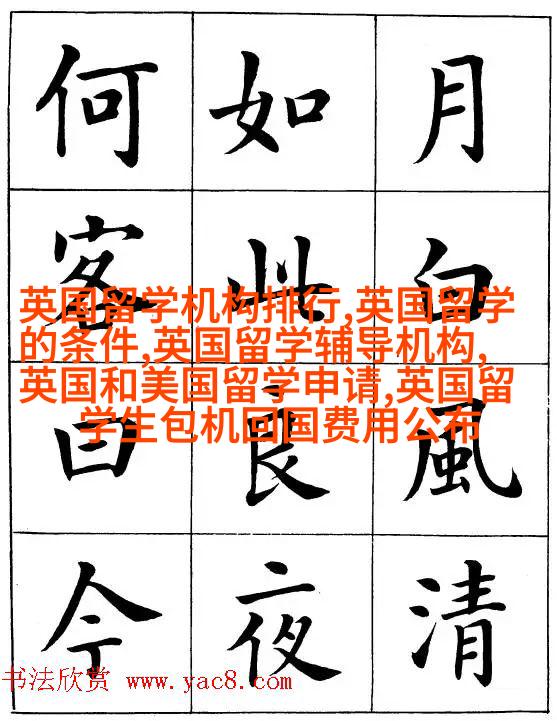 月白風清
如此良夜
何客曰今
英国留学机构排行,英国留学
的条件,英国留学辅导机构,
英国和美国留学申请,英国留
学生包机回国费用公布
书法欣赏 www.yac8.com